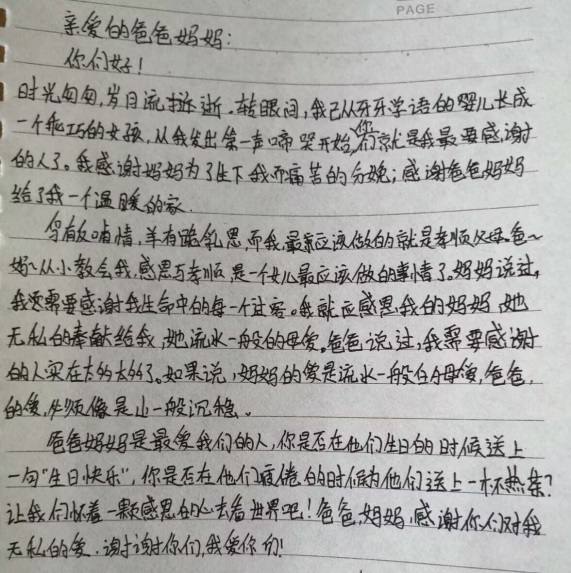 PAGE
亲爱的爸爸妈妈：
你们好！
时光匆匆，岁月流逝。转眼间，我已从牙牙学语的婴儿长成
一个乖巧的女孩，从我发出第一声啼哭开始，你们就是我最要感谢
的人了。我感谢妈妈为了生下我而痛苦的分娩；感谢爸爸妈妈
给了我一个温暖的家。
鸟有反哺情，羊有跪乳恩，而我最应该做的就是孝顺父母，爸~
妈~从小教会我，感恩与孝顺是一个女儿最应该做的事情了。妈妈说过，
我需要感谢我生命中的每一个过客。我就应感恩我的妈妈，她
无私的奉献给我，她流水一般的母爱。爸爸说过，我需要感谢
的人实在太多太多了。如果说，妈妈的爱是流水一般的母爱，爸爸
的爱，必须像是山一般沉稳。
爸爸妈妈是最爱我们的人，你是否在他们生日的时候送上
一句"生日快乐"，你是否在他们疲倦的时候为他们送上一杯热茶？
让我们怀着一颗感恩的心去看世界吧！爸爸，妈妈，感谢你们对我
无私的爱，谢谢你们，我爱你们！